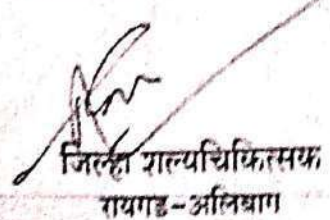 जिल्हा शल्यचिकित्सक
रायगड-अलिबाग